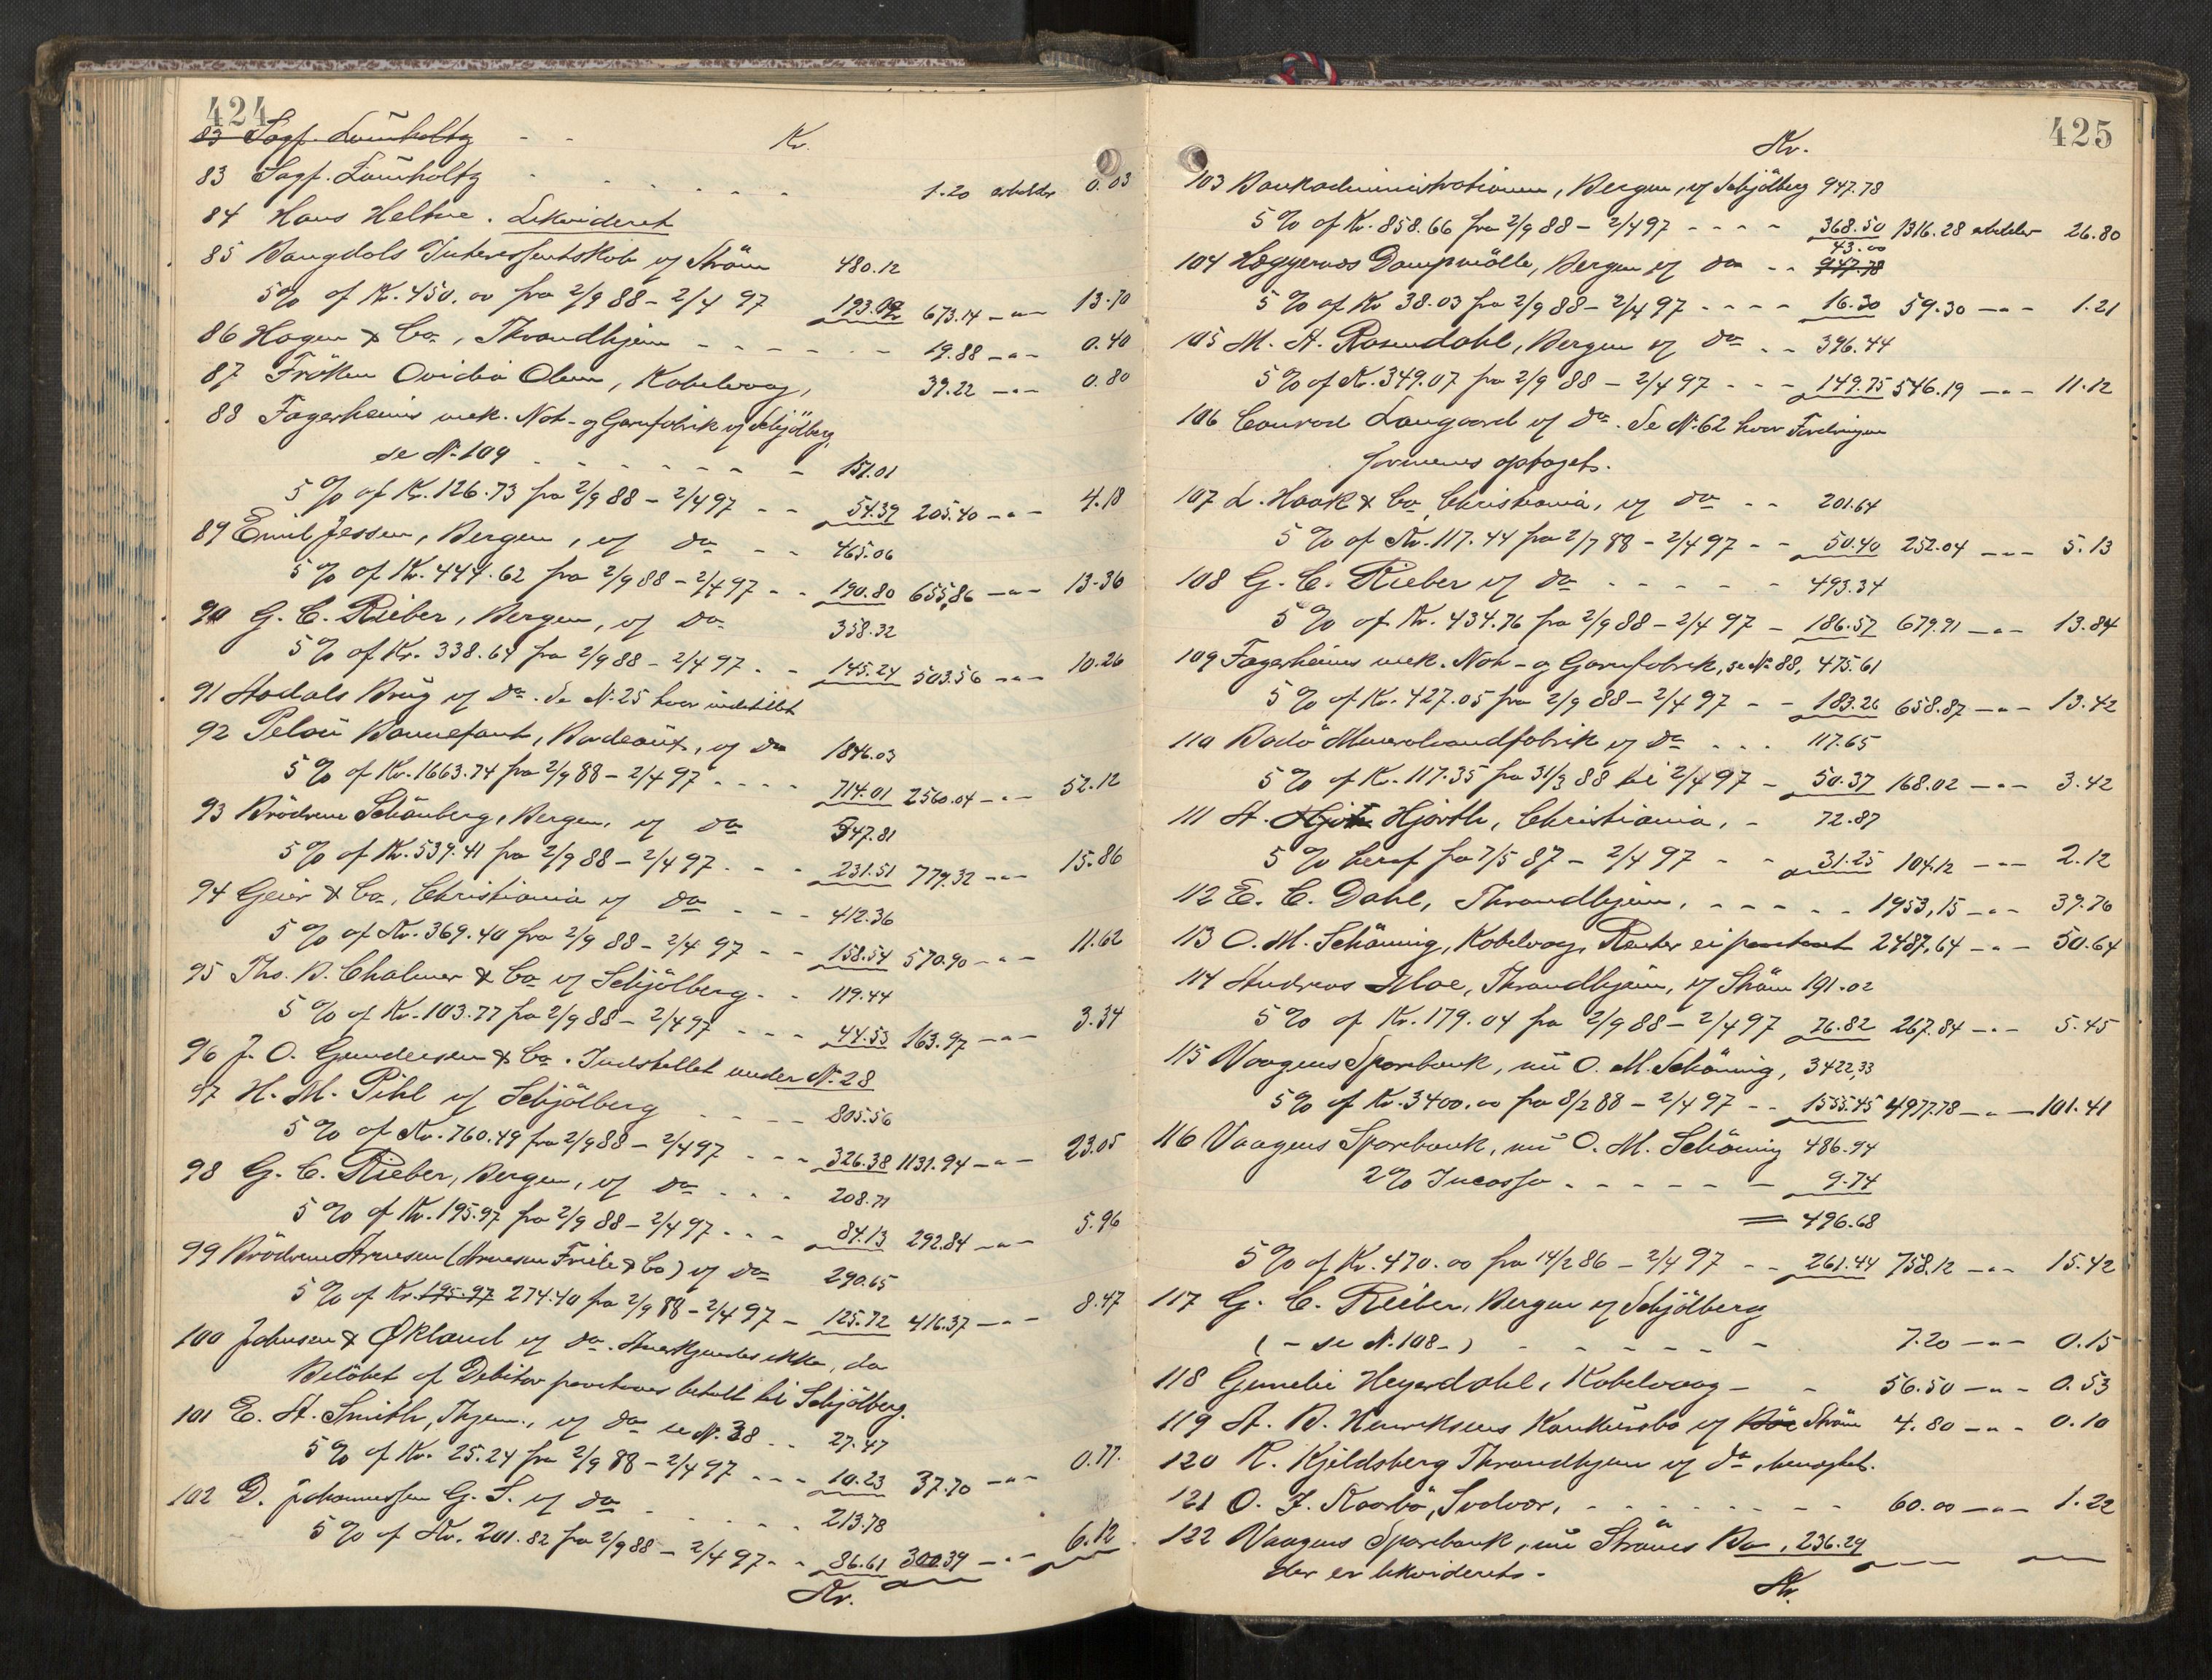 424
83 Sagf. Lumholtz - - Kr.
83 Sagf. Lumholtz - - - - - - 1.20 erholder 0.03
84 Hans Heltne. Likvideret
85 Bangdals Interessentskab v/ Ström 480.12
5% af Kr. 450.00 fra 2/9 88 - 2/4 97 193.02 673.14 -"- 13.70
86 Hagen & Co, Throndhjem - - - - - - 19.88 -"- 0.40
87 Fröken Ovidia Olsen, Kabelvaag, 39.22 -"- 0.80
88 Fagerheims mek. Not- og Garnfabrik v/ Schjölberg,
se N. 109 - - - - - - - 151.01
5% af Kr. 126.73 fra 2/9 88 - 2/4 97 - - 54.39 205.40 -"- 4.18
89 Emil Jessen, Bergen, v/ do - - 465.06
5% af Kr. 444.62 fra 2/9 88 - 2/4 97 - - 190.80 655.86 -"- 13.36
90 G. C. Rieber, Bergen, v/ do 358.32
5% af Kr. 338.64 fra 2/9 88 - 2/4 97 - - 145.24 503.56 -"- 10.26
91 Aadals Brug v/ do. Se N. 25 hvor indstillet
92 Pelou Bonnefant, Bordeaux, v/ do 1846.03
5% af Kr. 1663.74 fra 2/9 88 - 2/4 97 - - - - 714.01 2560.04 -"- 52.12
93 Brödrene Schönberg, Bergen, v/ do 547.81
5% af Kr. 539.41 fra 2/9 88 - 2/4 97 - - - 231.51 779.32 -"- 15.86
94 Geier & Co, Christiania v/ do - - - 412.36
5% af Kr. 369.40 fra 2/9 88 - 2/4 97 - - 158.54 570.90 -"- 11.62
95 Ths. B. Chalmer & Co v/ Schjölberg - - 119.44
5% af Kr. 103.77 fra 2/9 88 - 2/4 97 - - - 44.53 163.97 -"- 3.34
96 J. O. Gundersen & Co. Indstillet under N. 28
97 H. M. Pihl v/ Schjölberg - - - - 805.56
5% af Kr. 760.49 fra 2/9 88 - 2/4 97 - - - 326.38 1131.94 -"- 23.05
98 G. C. Rieber, Bergen, v/ do - - - 208.71
5% af Kr. 195.97 fra 2/9 88 - 2/4 97 - - - 84.13 292.84 -"- 5.96
99 Brödrene Arnesen (Arnesen Friele & Co) v/ do 290.65
5% af Kr. 195.97 274.40 fra 2/9 88 - 2/4 97 - 125.72 416.37 -"- 8.47
100 Johnsen & Økland v/ do. Anerkjendes ikke, da
Belöbet af Debitor paastaaes betalt til Schjölberg.
101 E. A. Smith, Thjem., v/ do se N. 38 - - 27.47
5% af Kr. 25.24 fra 2/9 88 - 2/4 97 - - - 10.23 37.70 -"- 0.77
102 D. Johannessen G. S. v/ do - - - - - 213.78
5% af Kr. 201.82 fra 2/9 88 - 2/4 97 - - 86.61 300.39 -"- 6.12
Kr.
425
Kr.
103 Bankadministrationen, Bergen, v/ Schjölberg 947.78
5% af Kr. 858.66 fra 2/9 88 - 2/4 97 - - - - 368.50 1316.28 erholder 26.80
43.00
104 Hæggernæs Dampmölle, Bergen v/ do - - 947.78
5% af Kr 38.03 fra 2/9 88 - 2/4 97 - - - - 16.30 59.30 -"- 1.21
105 M. A. Rosendahl, Bergen v/ do - - 396.44
5% af Kr. 349.07 fra 2/9 88 - 2/4 97 - - - 149.75 546.19 -"- 11.12
106 Conrad Langaard v/ do. Se N. 62 hvor Fordringen
formenes optaget.
107 L. Haak & Co, Christiania, v/ do - - 201.64
5% af Kr. 117.44 fra 2/7 88 - 2/4 97 - - 50.40 252.04 -"- 5.13
108 G. C. Rieber v/ do - - - - - - 493.34
5% af Kr. 434.76 fra 2/9 88 - 2/4 97 - 186.57 679.91 -"- 13.84
109 Fagerheims mek. Not- og Garnfabrik, se N. 88, 475.61
5% af Kr. 427.05 fra 2/9 88 - 2/4 97 - - 183.26 658.87 -"- 13.42
110 Bodö Mineralvandfabrik v/ do - - - 117.65
5% af Kr. 117.35 fra 31/3 88 til 2/4 97 - 50.37 168.02 -"- 3.42
111 A. Hjorth, Christiania, - 72.87
5% heraf fra 7/5 87 - 2/4 97 - - 31.25 104.12 -"- 2.12
112 E. C. Dahl, Throndhjem, - - - - - 1953,15 -"- 39.76
113 O. M. Schöning, Kabelvaag, Renter ei paastaaet 2487,64 -"- 50.64
114 Andreas Moe, Throndhjem, v/ Ström 191.02
5% af Kr. 179.04 fra 2/9 88 - 2/4 97 76.82 267.84 -"- 5.45
115 Vaagens Sparebank, nu O. M. Schöning, 3422,33
5% af Kr. 3400.00 fra 8/2 88 - 2/4 97 - - 1555.45 4977.78 -"- 101.41
116 Vaagens Sparebank, nu O. M. Schöning 486.94
2% Incasso - - - - - - 9.74
= 496.68
5% af Kr. 470.00 fra 14/2 86 - 2/4 97 - - 261.44 758.12 -"- 15.42
117 G. C. Rieber, Bergen v/ Schjölberg
( - se N. 108 - ) - - - - - - 7.20 -"- 0.15
118 Gunelie Heyerdahl, Kabelvaag - - 56.50 -"- 0.53
119 A. B. Henriksens Konkursbo v/ Ström 4.80 -"- 0.10
120 K. Kjeldsberg Throndhjem v/ do, benægtet.
121 O. J. Kaarbö, Svolvær, - - - - - - - - 60.00 -"- 1.22
122 Vaagens Sparebank, nu Ströms Bo, 236.29
der er likvideret. -
Kr.